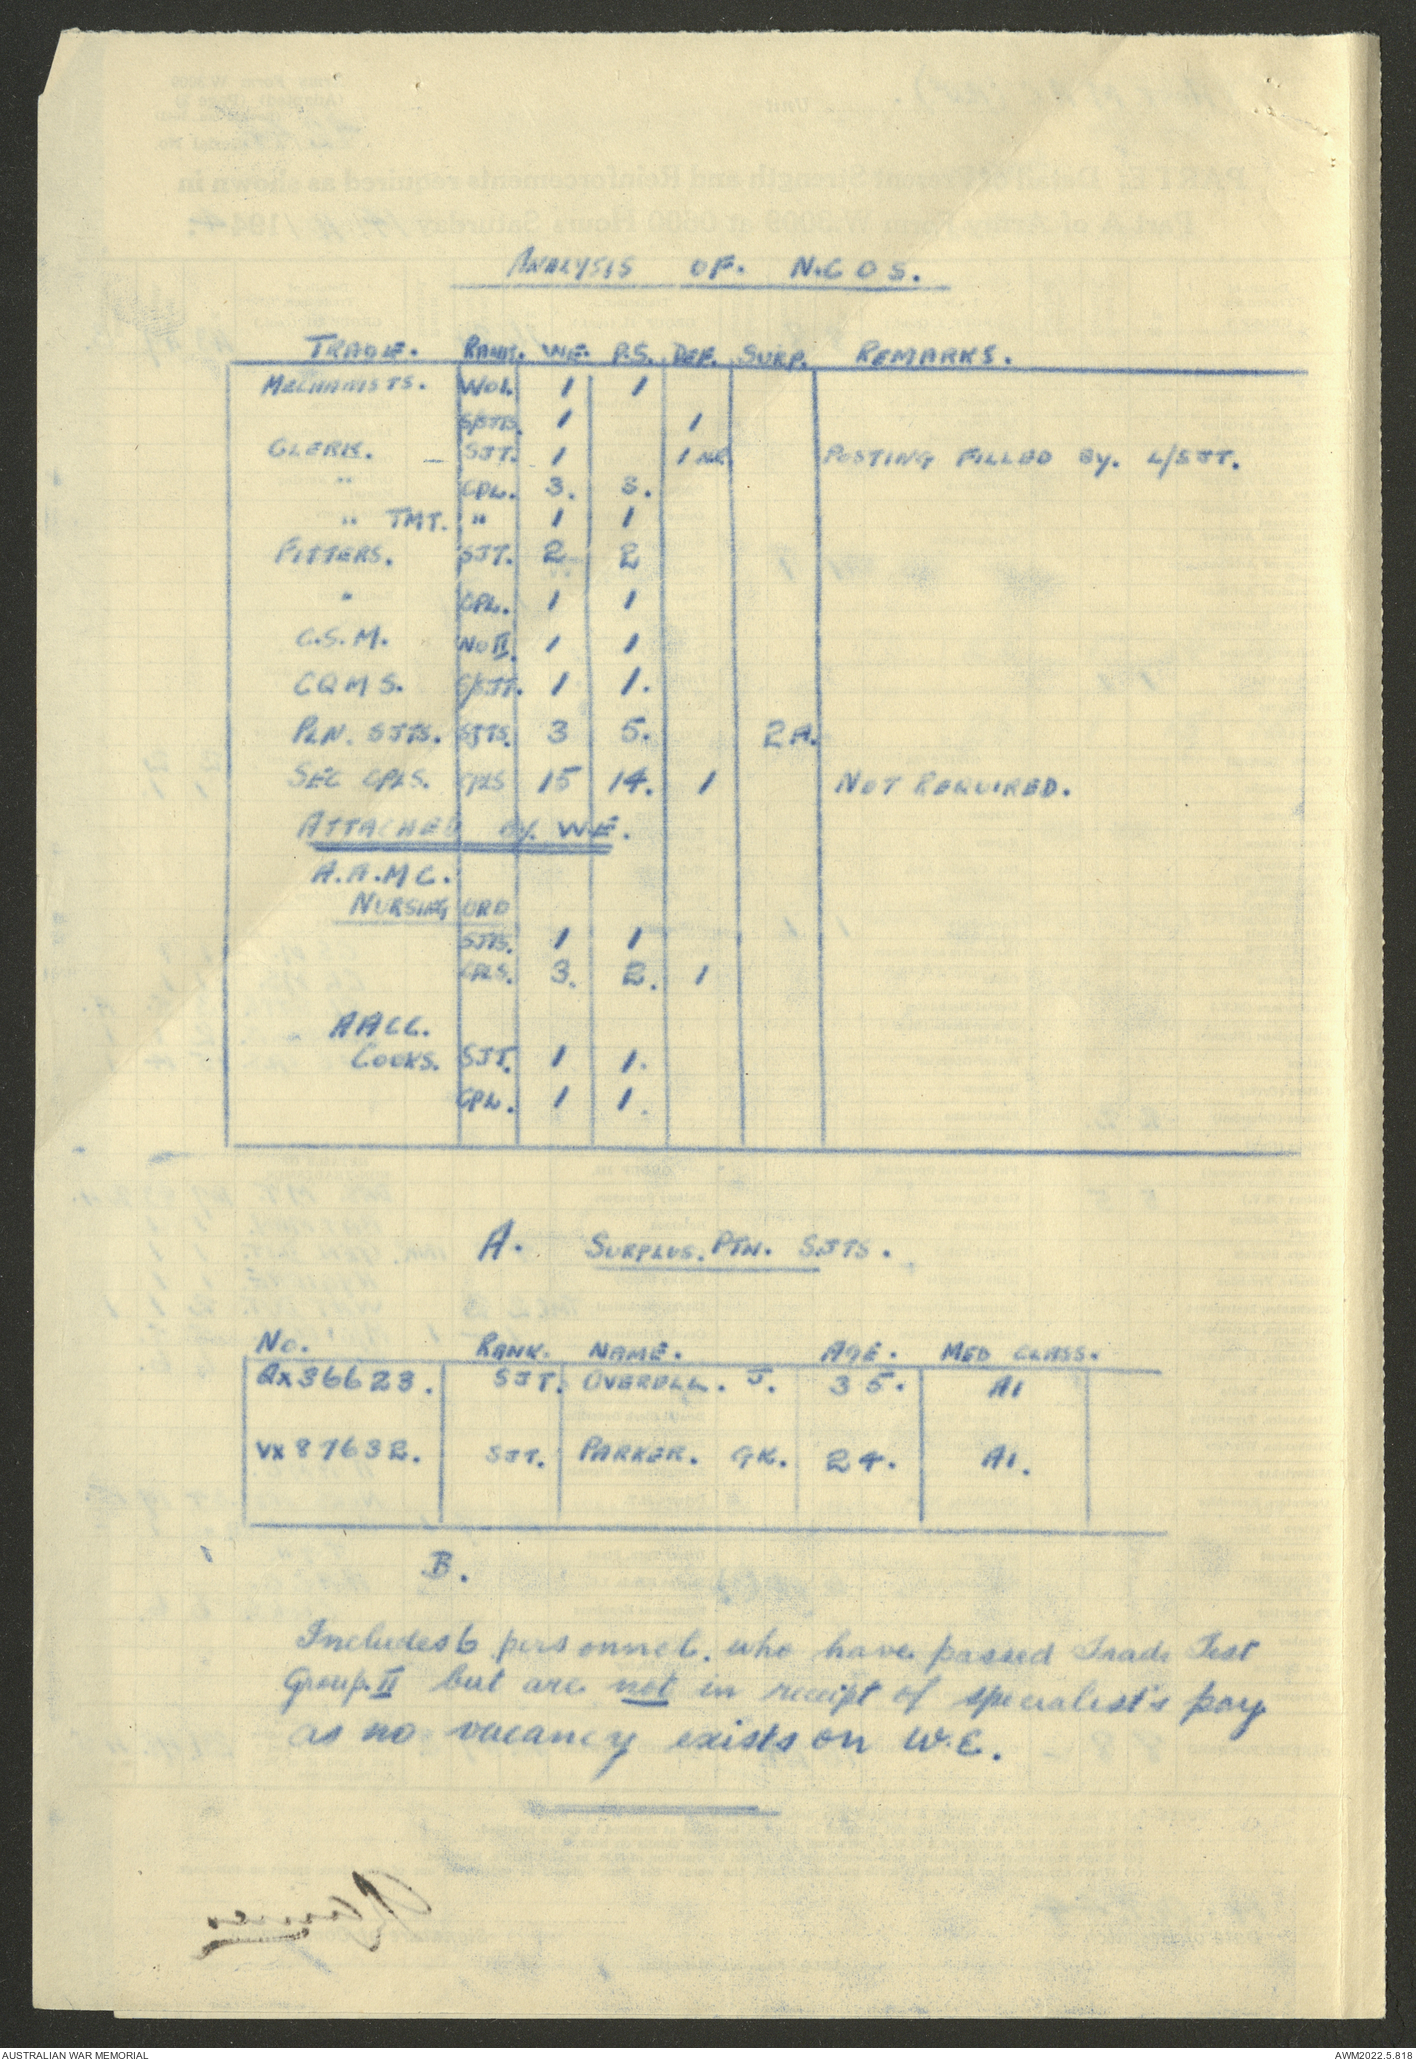 ANALYSIS OF. N.C O S.
TRADE. RANK. W.E. P.S. DEF. SURP. REMARKS.
MECHANISTS. WO1. 1 1
S/SJTS. 1 1
CLERK. — SJT. 1 1 N.R. POSTING FILLED BY. L/SJT.
" CPL. 3. 3.
" TMT. " 1 1
FITTERS. SJT. 2 2
" CPL. 1 1
C.S.M. WO II. 1 1
CQMS. S/SJT. 1 1.
PLN. SJTS. SJTS. 3 5. 2A.
SEC CPLS. CPLS 15 14. 1 NOT REQUIRED.
ATTACHED BY. W.E.
A.A.M C.
NURSING ORD
SJTS. 1 1
CPLS. 3. 2. 1
AACC.
COOKS. SJT. 1 1.
CPL. 1 1.
A. SURPLUS. PTN. SJTS.
No. RANK. NAME. AGE. MED CLASS.
QX36623. SJT. OVERELL. J. 35. A1
VX87632. SJT. PARKER. GK. 24. A1.
B.
Includes 6 personnel. who have passed Trade Test
Group. II but are not in receipt of specialist's pay
as no vacancy exists on W.E.
AUSTRALIAN WAR MEMORIAL AWM2022.5.818